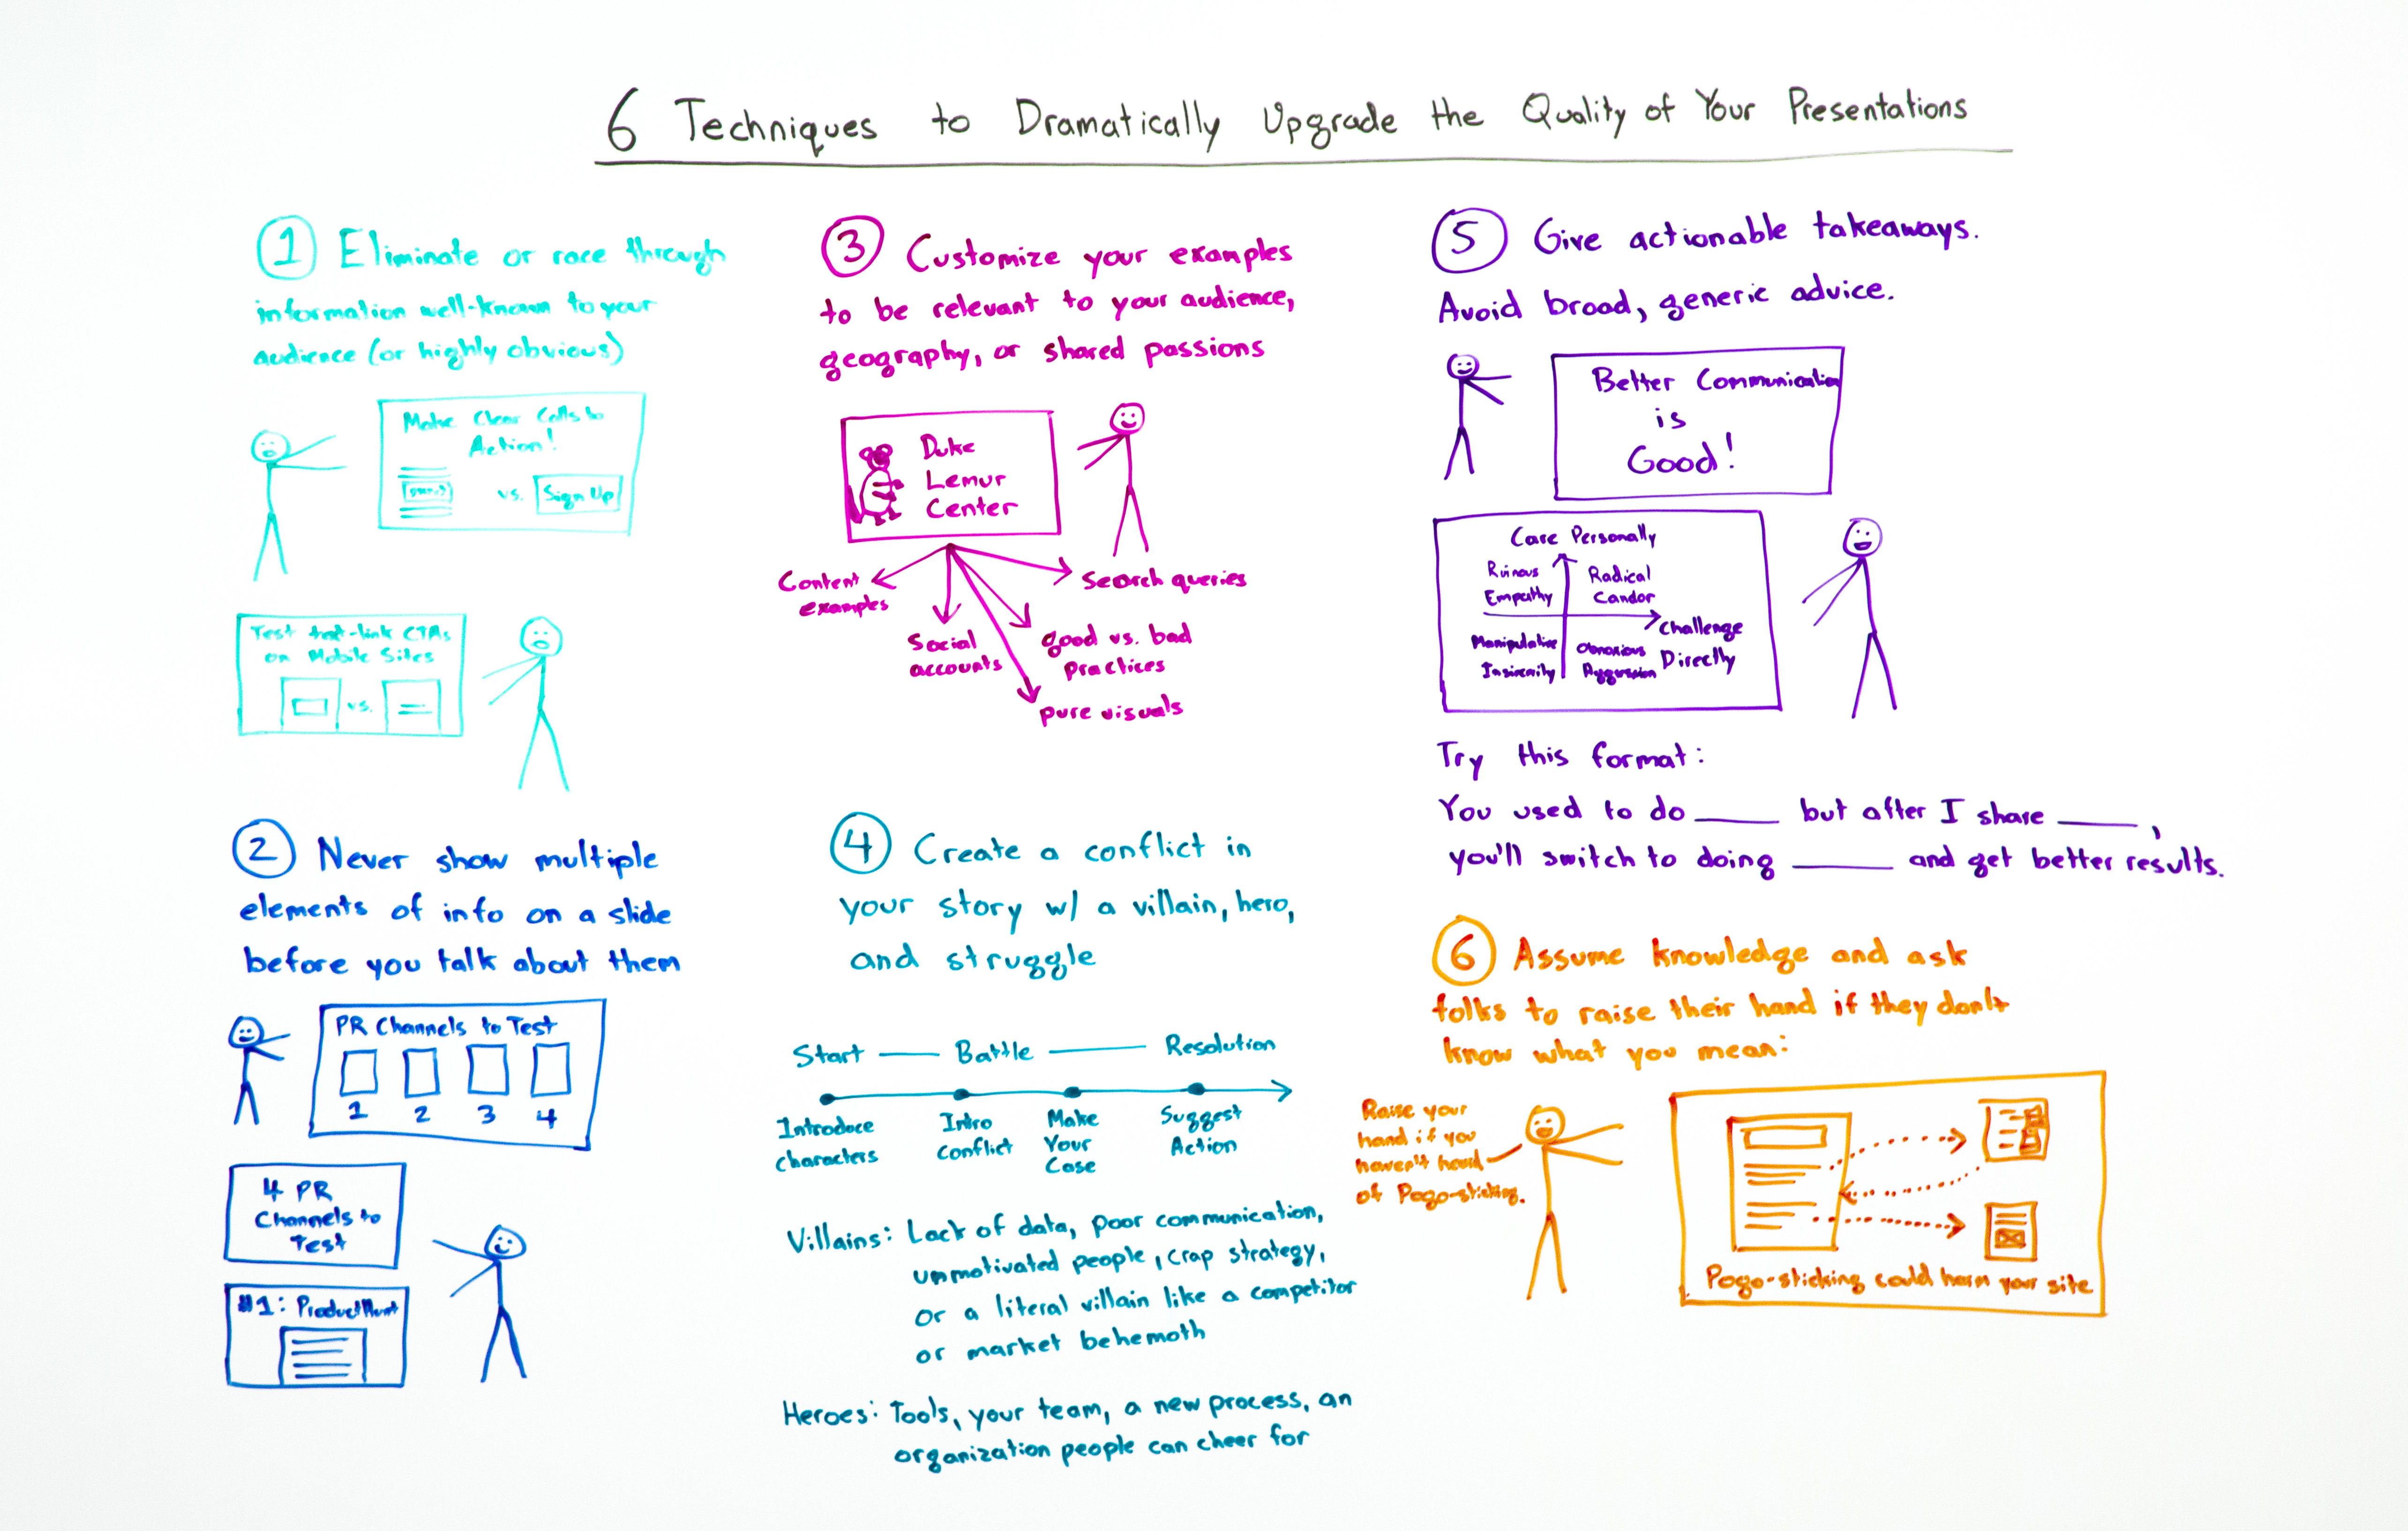 6 Techniques to Dramatically Upgrade the Quality of Your Presentations
1 Eliminate or race through
information well-known to your
audience (or highly obvious)
Make Clear Calls to
Action!
vs. Sign Up
Test text-link CTAs
on Mobile Sites
vs.
2 Never show multiple
elements of info on a slide
before you talk about them
PR Channels to Test
1 2 3 4
4 PR
Channels to
Test
#1: ProductHunt
3 Customize your examples
to be relevant to your audience,
geography, or shared passions
Duke
Lemur
Center
Content
examples
Social
accounts
pure visuals
good vs. bad
practices
Search queries
4 Create a conflict in
your story w/ a villain, hero,
and struggle
Start — Battle — Resolution
Introduce
characters
Intro
Conflict
Make
Your
Case
Suggest
Action
Villains: Lack of data, poor communication,
unmotivated people, crap strategy,
or a literal villain like a competitor
or market behemoth
Heroes: Tools, your team, a new process, an
organization people can cheer for
5 Give actionable takeaways.
Avoid broad, generic advice.
Better Communication
is
Good!
Care Personally
Ruinous
Empathy
Radical
Candor
Challenge
Directly
Manipulative
Insincerity
Obnoxious
Aggression
Try this format:
You used to do ____ but after I share ____,
you'll switch to doing ____ and get better results.
6 Assume knowledge and ask
folks to raise their hand if they don't
know what you mean:
Raise your
hand if you
haven't heard
of Pogo-sticking.
Pogo-sticking could harm your site